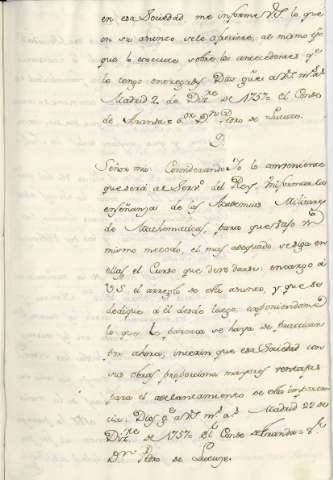 en esa Sociedad, me informe V.S. lo que
en su asunto se le ofreciere, al mismo tpo
que lo execute sobre los antecedentes qe
le tengo entregados. Dios gue a V.S. ms. as.
Madrid 2 de Dizre de 1757. el Conde
de Aranda = Sor Dn Pedro de Lucuce.
9.
Señor mio Considerando Yo lo combeniente
que será al Servo del Rey, uniformar las
enseñanzas de las Academias Militares
de Mathematicas, para que bajo un
mismo methodo, el mas adequado, se siga en
ellas el Curso que deve darse: encargo a
V.S. el arreglo de este asunto, y que se
dedique a él desde luego, exponiendome
lo que le parezca se haya de practicar
por ahora, interin que esa Sociedad con
sus obras proporciona mayores ventajas
para el adelantamiento de esta importan
cia. Dios ge a V.S. ms as Madrid 22 de
Dizre de 1757. el Conde de Aranda = Sr
Dn Pedro de Lucuze.